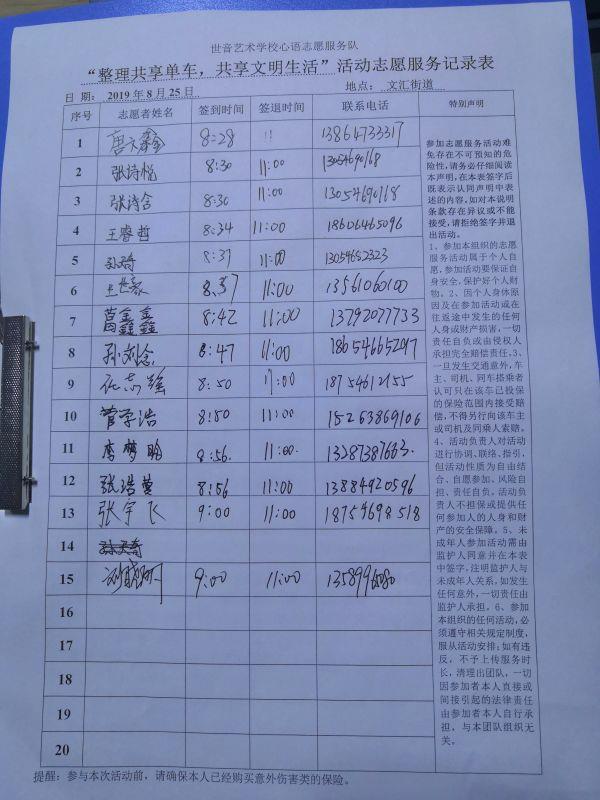 世音艺术学校心语志愿服务队
“整理共享单车，共享文明生活”活动志愿服务记录表
日 期： 2019年8月25日 地点： 文汇街道
序号 志愿者姓名 签到时间 签退时间 联系电话 特别声明
1 8:28 13864733317
2 张诗悦 8:30 11:00 13054690168
3 张诗含 8:30 11:00 13054690168
4 王睿哲 8:34 11:00 18606465096
5 8:37 11:00 13054652323
6 8:37 11:00 13561060100
7 8:42 11:00 13792077733
8 8:47 11:00
9 8:50 11:00 18754612155
10 管学浩 8:50 11:00 15263869106
11 李梦鸥 8:56. 11:00. 13287387663.
12 8:56 11:00 13884920596
13 张宇飞 9:00 11:00 18754698518
14
15 9:00 11:00
16
17
18
19
20
参加志愿服务活动难
免存在不可预知的危
险性，请务必仔细阅读
本声明，在本表签字后
既表示认同声明中表
述的内容，如对本说明
条款存在异议或不能
接受，请拒绝签字并退
出活动。
1、参加本组织的志愿
服务活动属于个人自
愿，参加活动要保证自
身安全，保护好个人财
物。2、因个人身体原
因及在参加活动或在
往返途中发生的任何
人身或财产损害，一切
责任自负或由侵权人
承担完全赔偿责任。3、
一旦发生交通意外，车
主、司机、同车搭乘者
认可只在该车已投保
的保险范围内接受赔
偿，不得另行向该车主
或司机及同乘人索赔。
4、活动负责人对活动
进行协调、联络、指引，
但活动性质为自由结
合、自愿参加、风险自
担、责任自负，活动负
责人不担保或提供任
何参加人的人身和财
产的安全保障。5、未
成年人参加活动需由
监护人同意并在本表
中签字，注明监护人与
未成年人关系，如发生
任何意外，一切责任由
监护人承担。6、参加
本组织的任何活动，必
须遵守相关规定制度，
服从活动安排；如有违
反，不予上传服务时
长，清理出团队，一切
因参加者本人直接或
间接引起的法律责任
由参加者本人自行承
担，与本团队组织无
关。
提醒：参与本次活动前，请确保本人已经购买意外伤害类的保险。